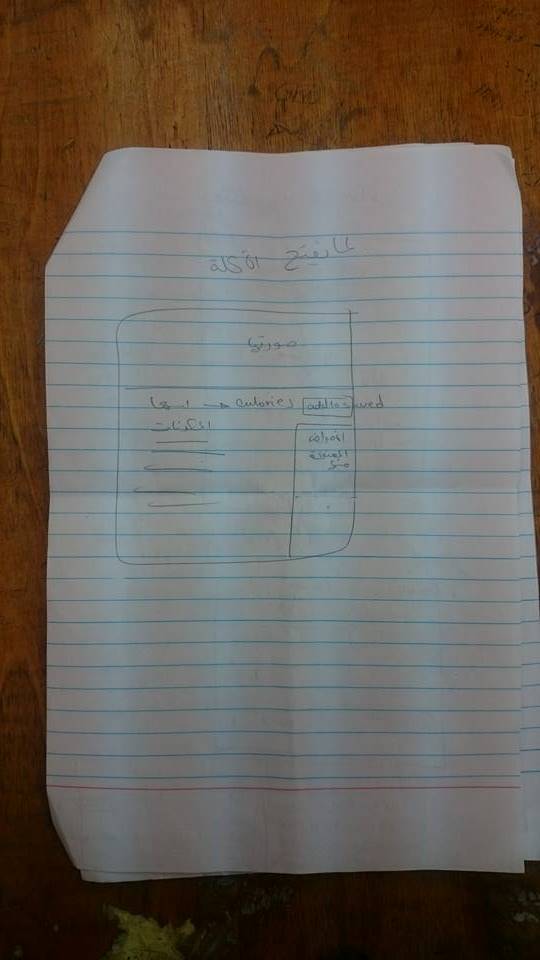 لما نفتح الأكلة
صورتها
اسمها → calories add to saved
المكونات
الأمراض
الممنوعة
منها